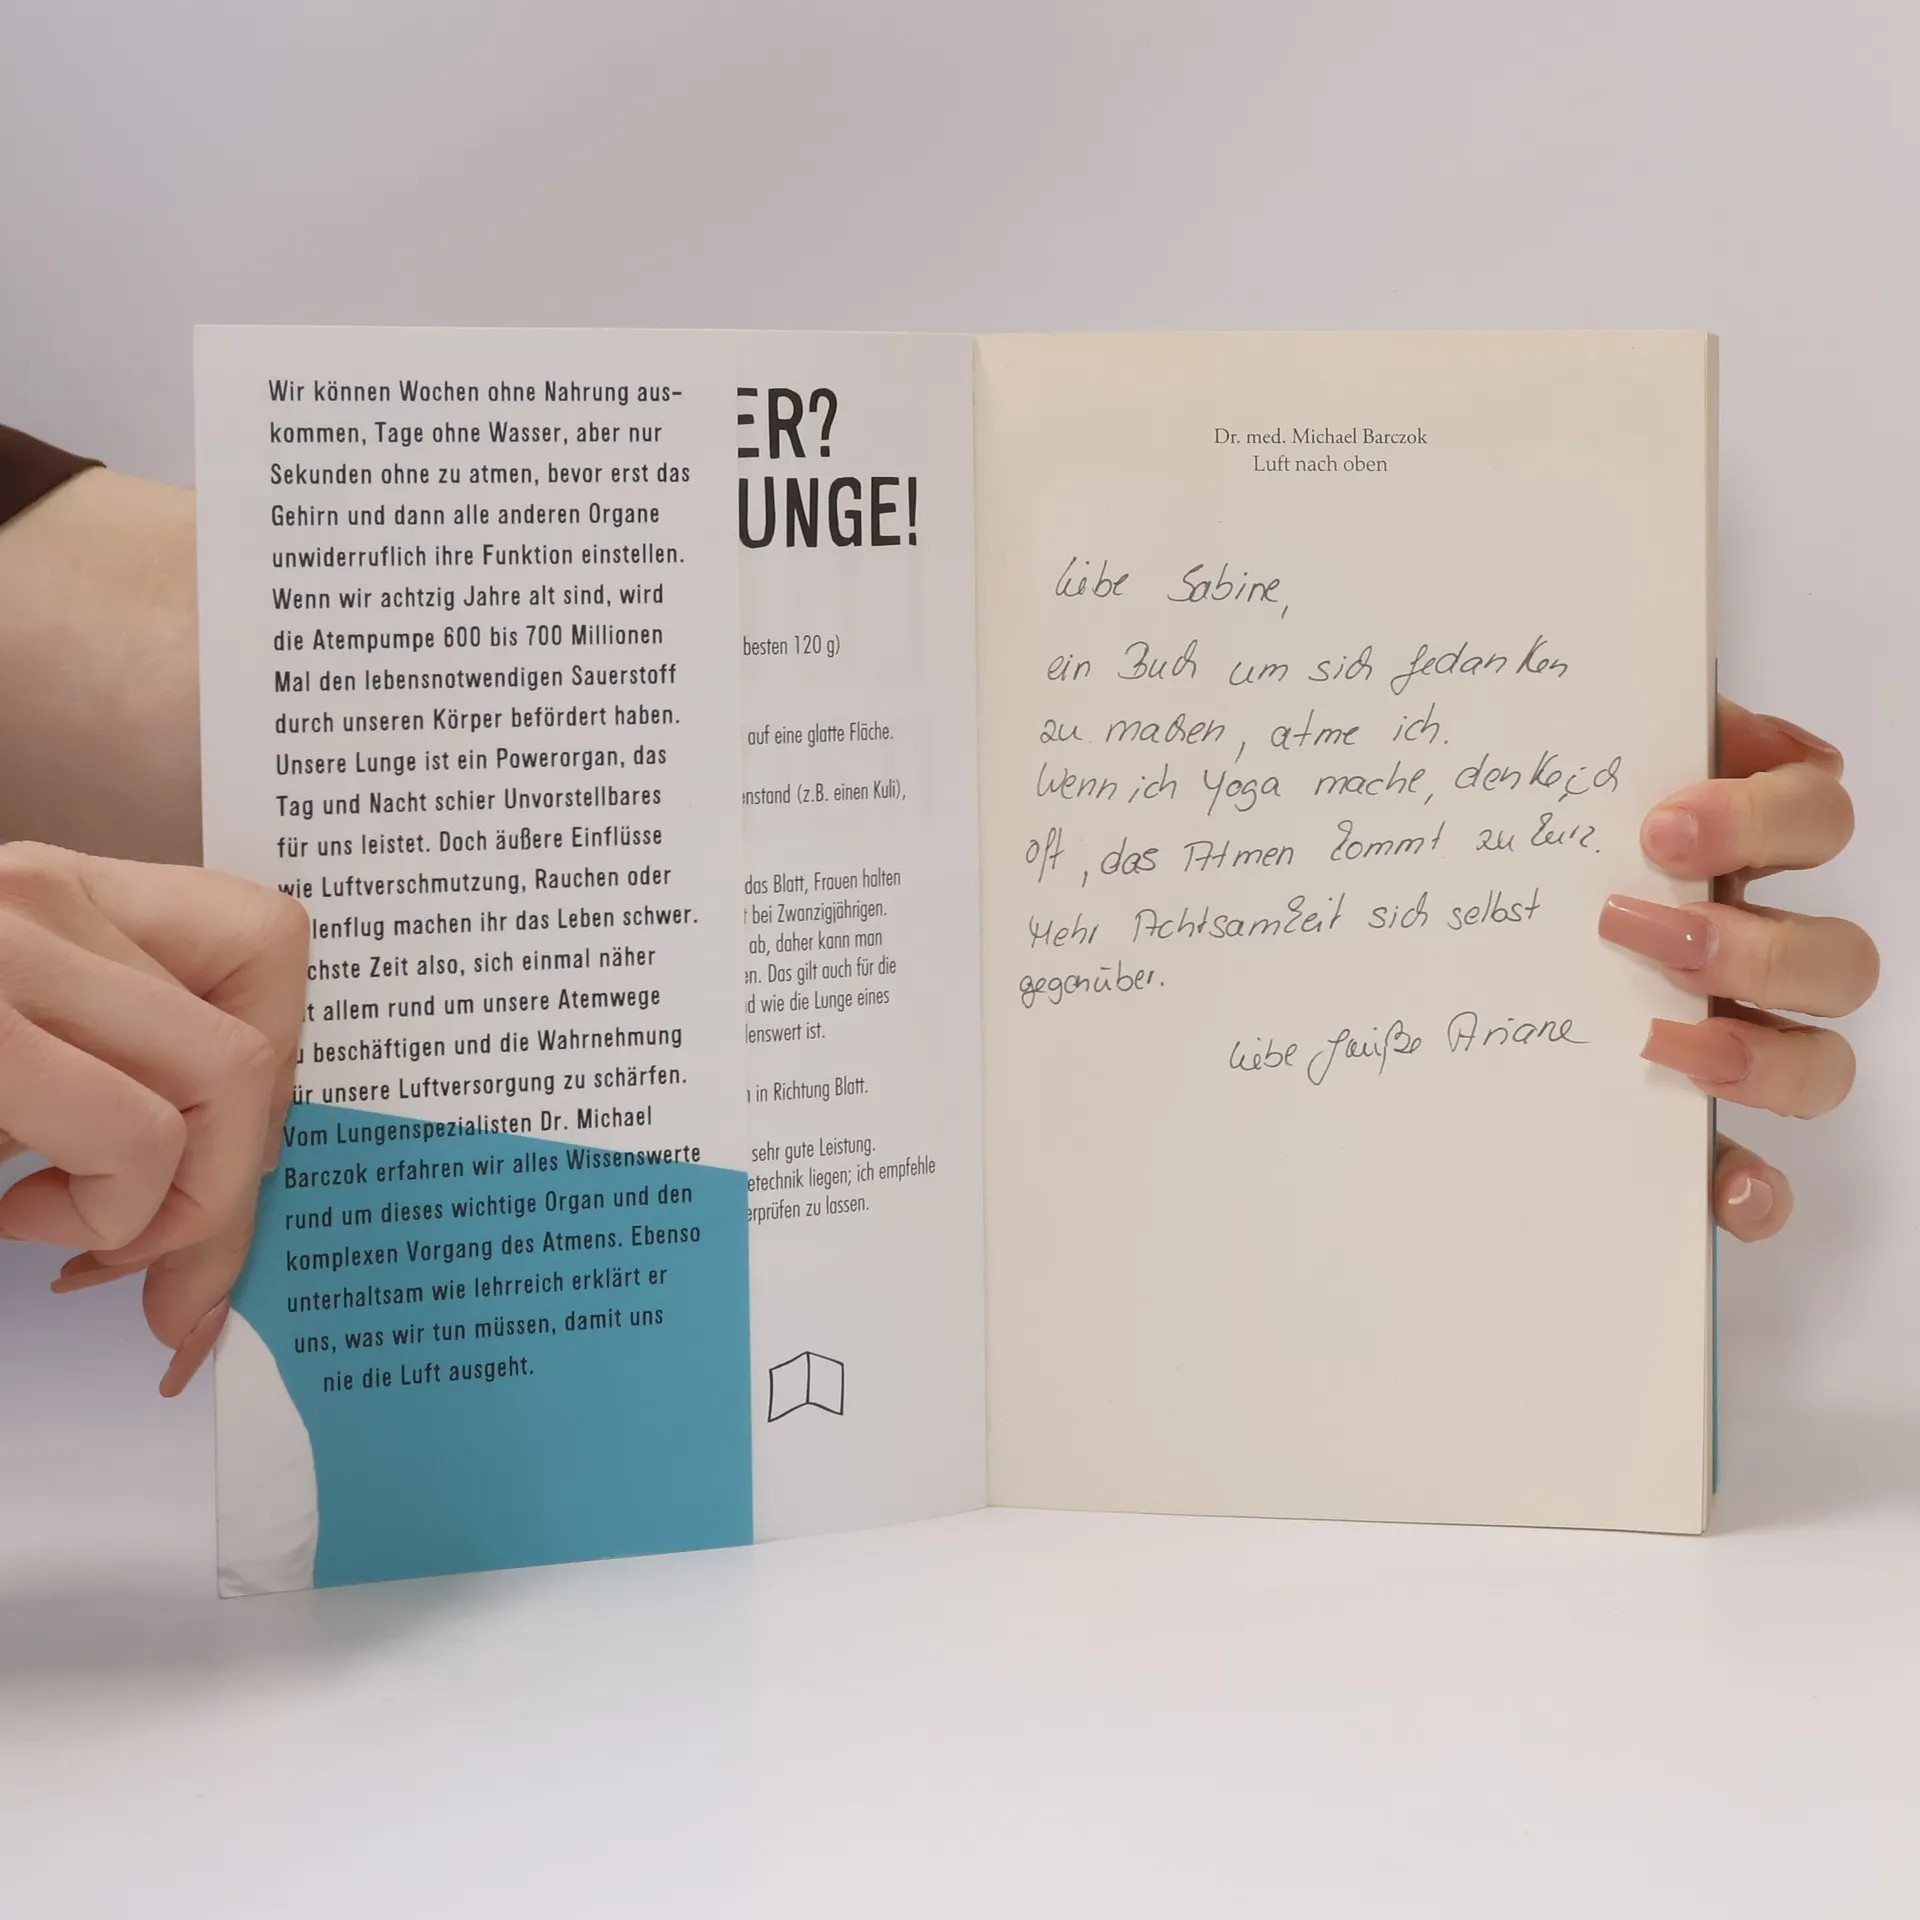 Wir können Wochen ohne Nahrung aus-
kommen, Tage ohne Wasser, aber nur
Sekunden ohne zu atmen, bevor erst das
Gehirn und dann alle anderen Organe
unwiderruflich ihre Funktion einstellen.
Wenn wir achtzig Jahre alt sind, wird
die Atempumpe 600 bis 700 Millionen
Mal den lebensnotwendigen Sauerstoff
durch unseren Körper befördert haben.
Unsere Lunge ist ein Powerorgan, das
Tag und Nacht schier Unvorstellbares
für uns leistet. Doch äußere Einflüsse
wie Luftverschmutzung, Rauchen oder
lenflug machen ihr das Leben schwer.
chste Zeit also, sich einmal näher
t allem rund um unsere Atemwege
u beschäftigen und die Wahrnehmung
ür unsere Luftversorgung zu schärfen.
Vom Lungenspezialisten Dr. Michael
Barczok erfahren wir alles Wissenswerte
rund um dieses wichtige Organ und den
komplexen Vorgang des Atmens. Ebenso
unterhaltsam wie lehrreich erklärt er
uns, was wir tun müssen, damit uns
nie die Luft ausgeht.
ER?
UNGE!
besten 120 g)
auf eine glatte Fläche.
enstand (z.B. einen Kuli),
das Blatt, Frauen halten
t bei Zwanzigjährigen.
ab, daher kann man
en. Das gilt auch für die
d wie die Lunge eines
lenswert ist.
n in Richtung Blatt.
sehr gute Leistung.
etechnik liegen; ich empfehle
erprüfen zu lassen.
Dr. med. Michael Barczok
Luft nach oben
Liebe Sabine,
ein Buch um sich Gedanken
zu machen, atme ich.
Wenn ich Yoga mache, denke ich
oft, das Atmen kommt zu kurz.
Mehr Achtsamkeit sich selbst
gegenüber.
Liebe Grüße Ariane